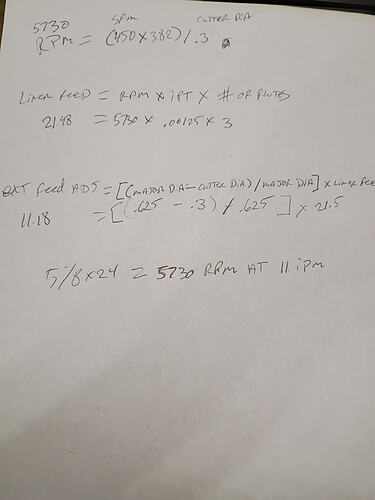 5730 SFM CUTTER DIA
RPM = (450 x 3.82) / .3
LINER FEED = RPM x IPT x # OF FLUTES
2148 = 5730 x .00125 x 3
EXT FEED ADJ = [(MAJOR DIA - CUTTER DIA) / MAJOR DIA] x LINER FEE
11.18 = [(.625 - .3) / .625] x 21.5
5/8 x 24 = 5730 RPM AT 11 iPM